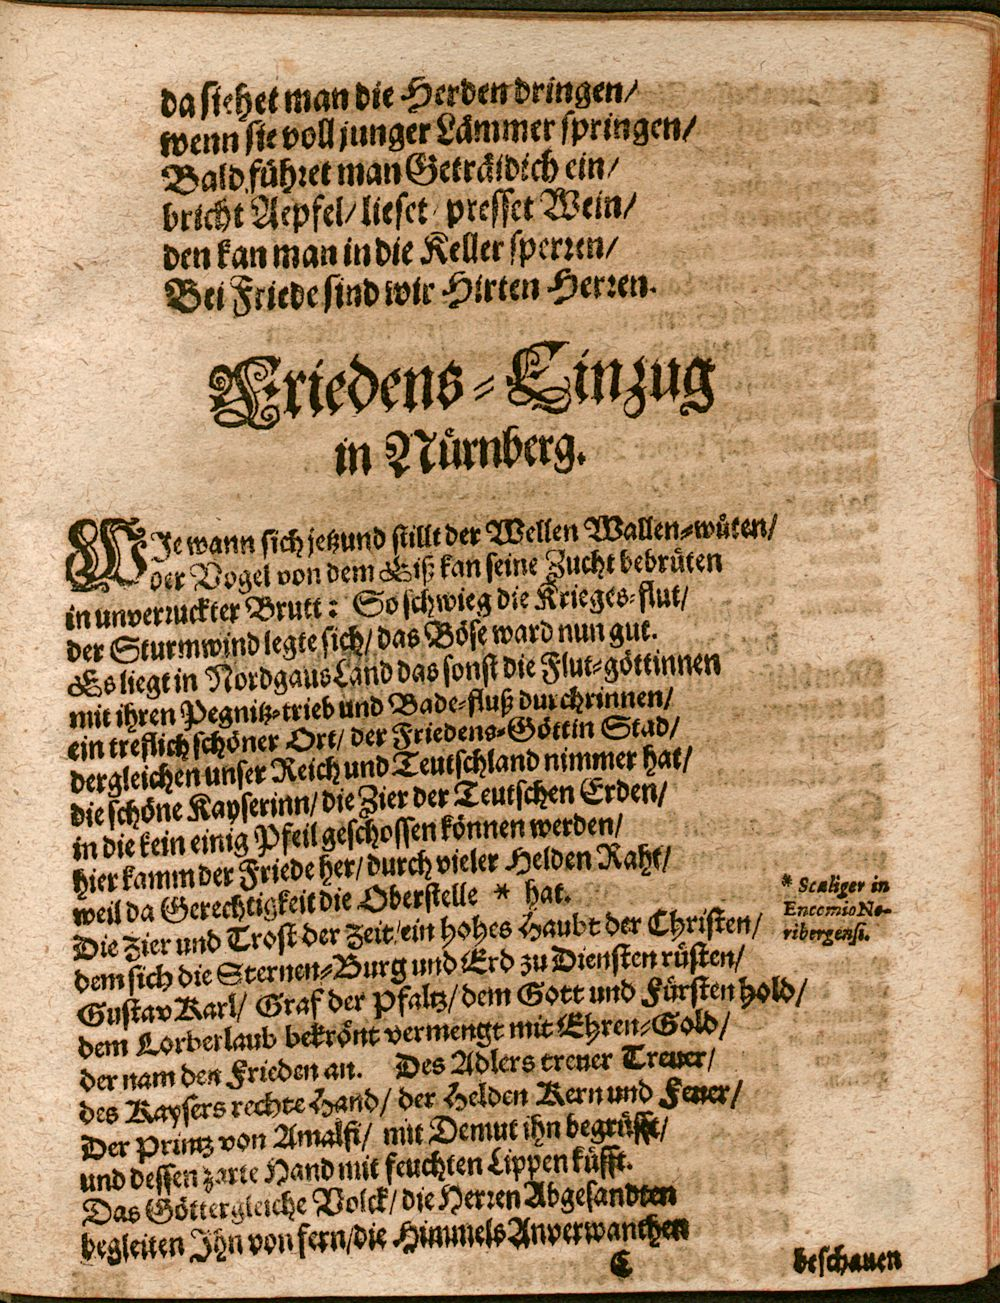 da siehet man die Herden dringen/
wenn sie voll junger Lämmer springen/
Bald führet man Geträidich ein/
bricht Aepfel/ lieset/ presset Wein/
den kan man in die Keller sperren/
Bei Friede sind wir Hirten Herren.
Friedens-Einzug
in Nürnberg.
WJe wann sich jetzund stillt der Wellen Wallen-wüten/
der Vogel von dem Eiß kan seine Zucht bebrüten
in unverruckter Brutt: So schwieg die Krieges-flut/
der Sturmwind legte sich/ das Böse ward nun gut.
Es liegt in Nordgaus Land das sonst die Flut-göttinnen
mit ihren Pegnitz-trieb und Bade-fluß durchrinnen/
ein treflich schöner Ort/ der Friedens-Göttin Stad/
dergleichen unser Reich und Teutschland nimmer hat/
die schöne Kayserinn/ die Zier der Teutschen Erden/
in die kein einig Pfeil geschossen können werden/
hier kamm der Friede her/ durch vieler Helden Raht/
weil da Gerechtigkeit die Oberstelle * hat.
* Scaliger in
Encomio No-
ribergensi.
Die Zier und Trost der Zeit/ ein hohes Haubt der Christen/
dem sich die Sternen-Burg und Erd zu Diensten rüsten/
Gustav Karl/ Graf der Pfaltz/ dem Gott und Fürsten hold/
dem Lorberlaub bekrönt vermengt mit Ehren-Gold/
der nam den Frieden an. Des Adlers treuer Treuer/
des Kaysers rechte Hand/ der Helden Kern und Feuer/
Der Printz von Amalfi/ mit Demut ihn begrüsst/
und dessen zarte Hand mit feuchten Lippen küsst.
Das Göttergleiche Volck/ die Herren Abgesandten
begleiten Jhn von fern/die Himmels Anverwanthen
C beschauen